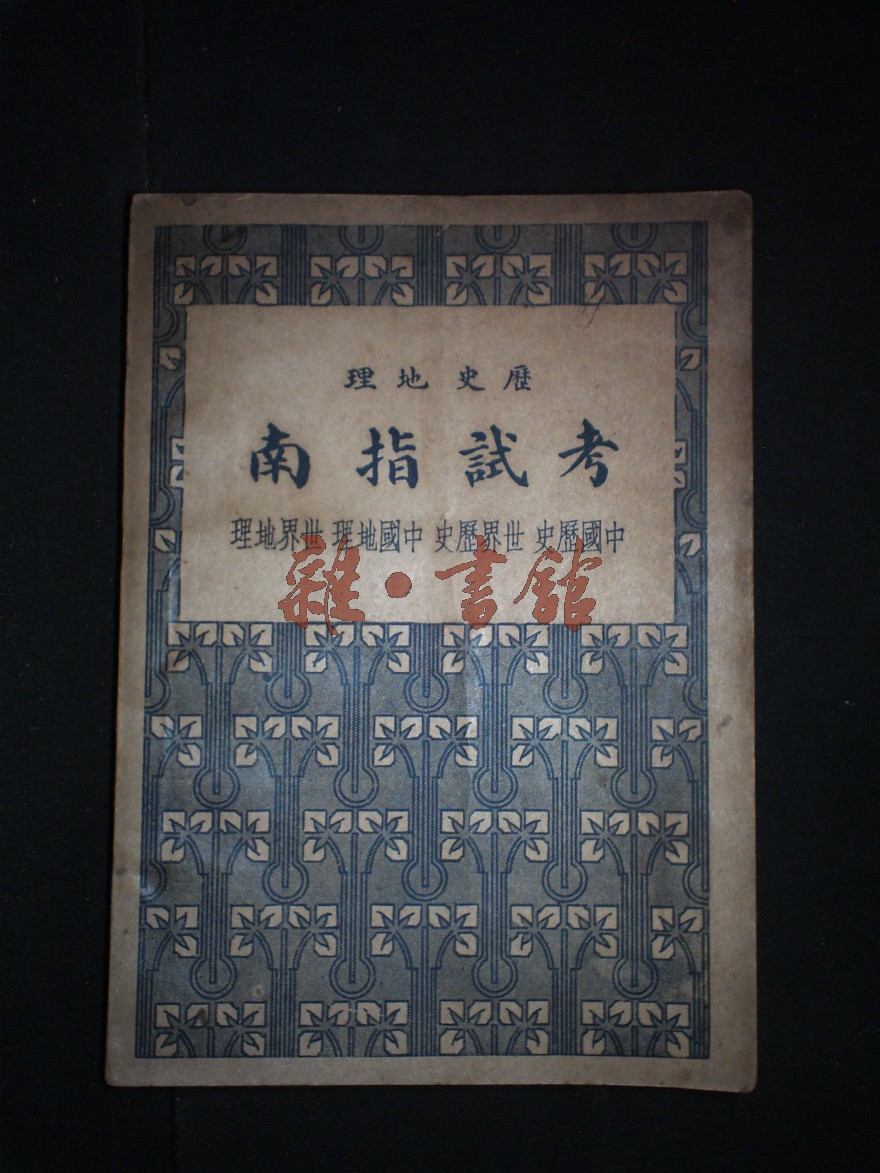 歷史地理
考試指南
中國歷史 世界歷史 中國地理 世界地理
雜·書館